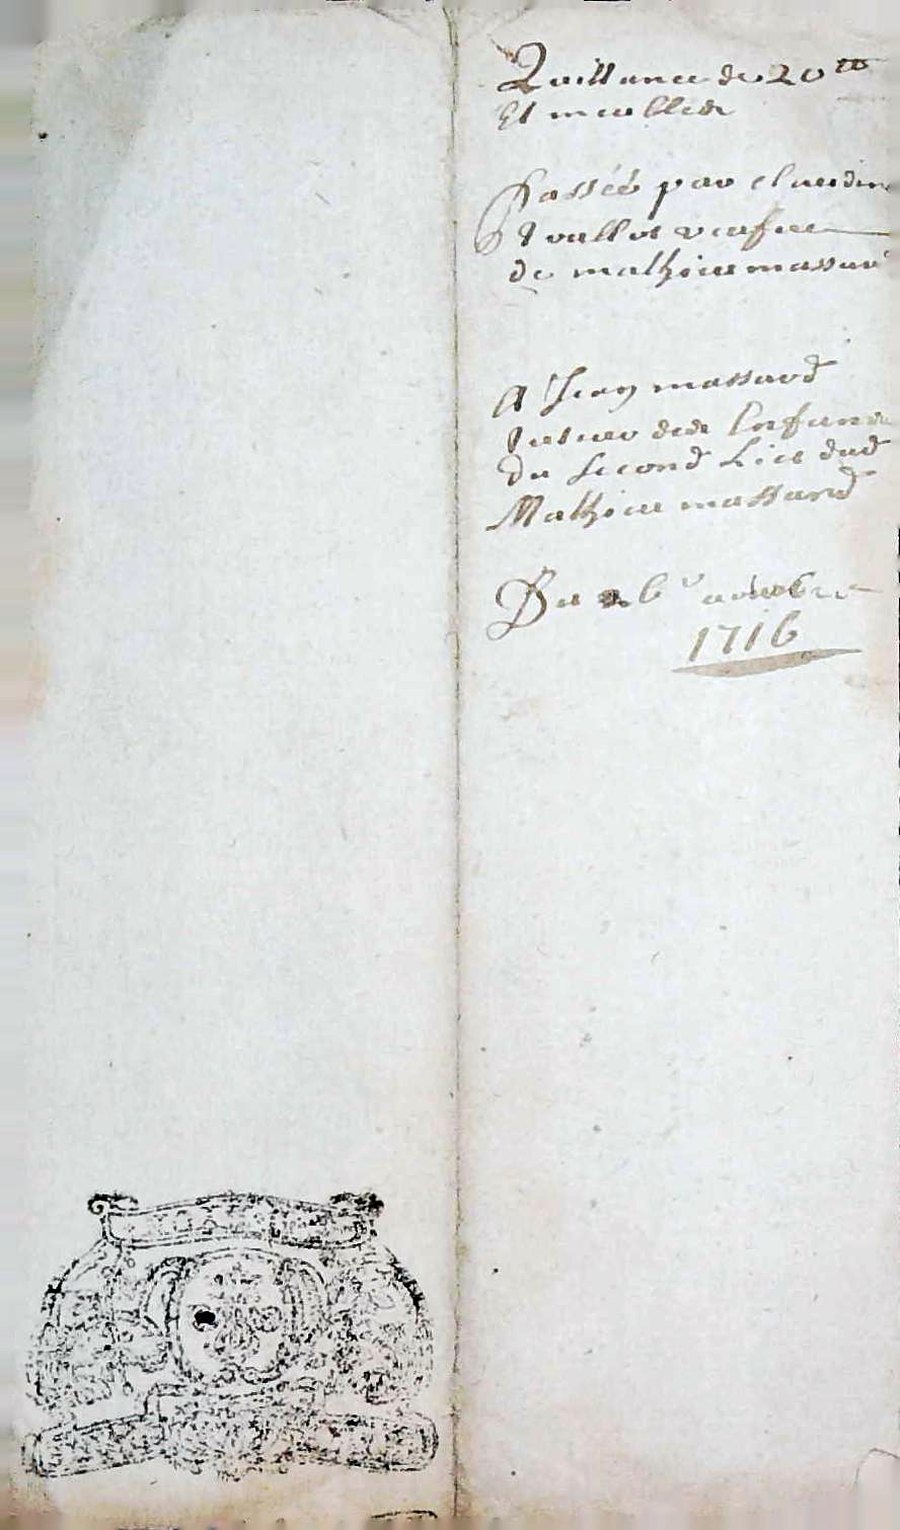 Quittance de 20 tt
Et meubles
Passée par claudine
veufue
de mathieu massard
A Jean massard
tuteur des Enfans
du second Lict dud
Mathieu massard
Du 6e
1716